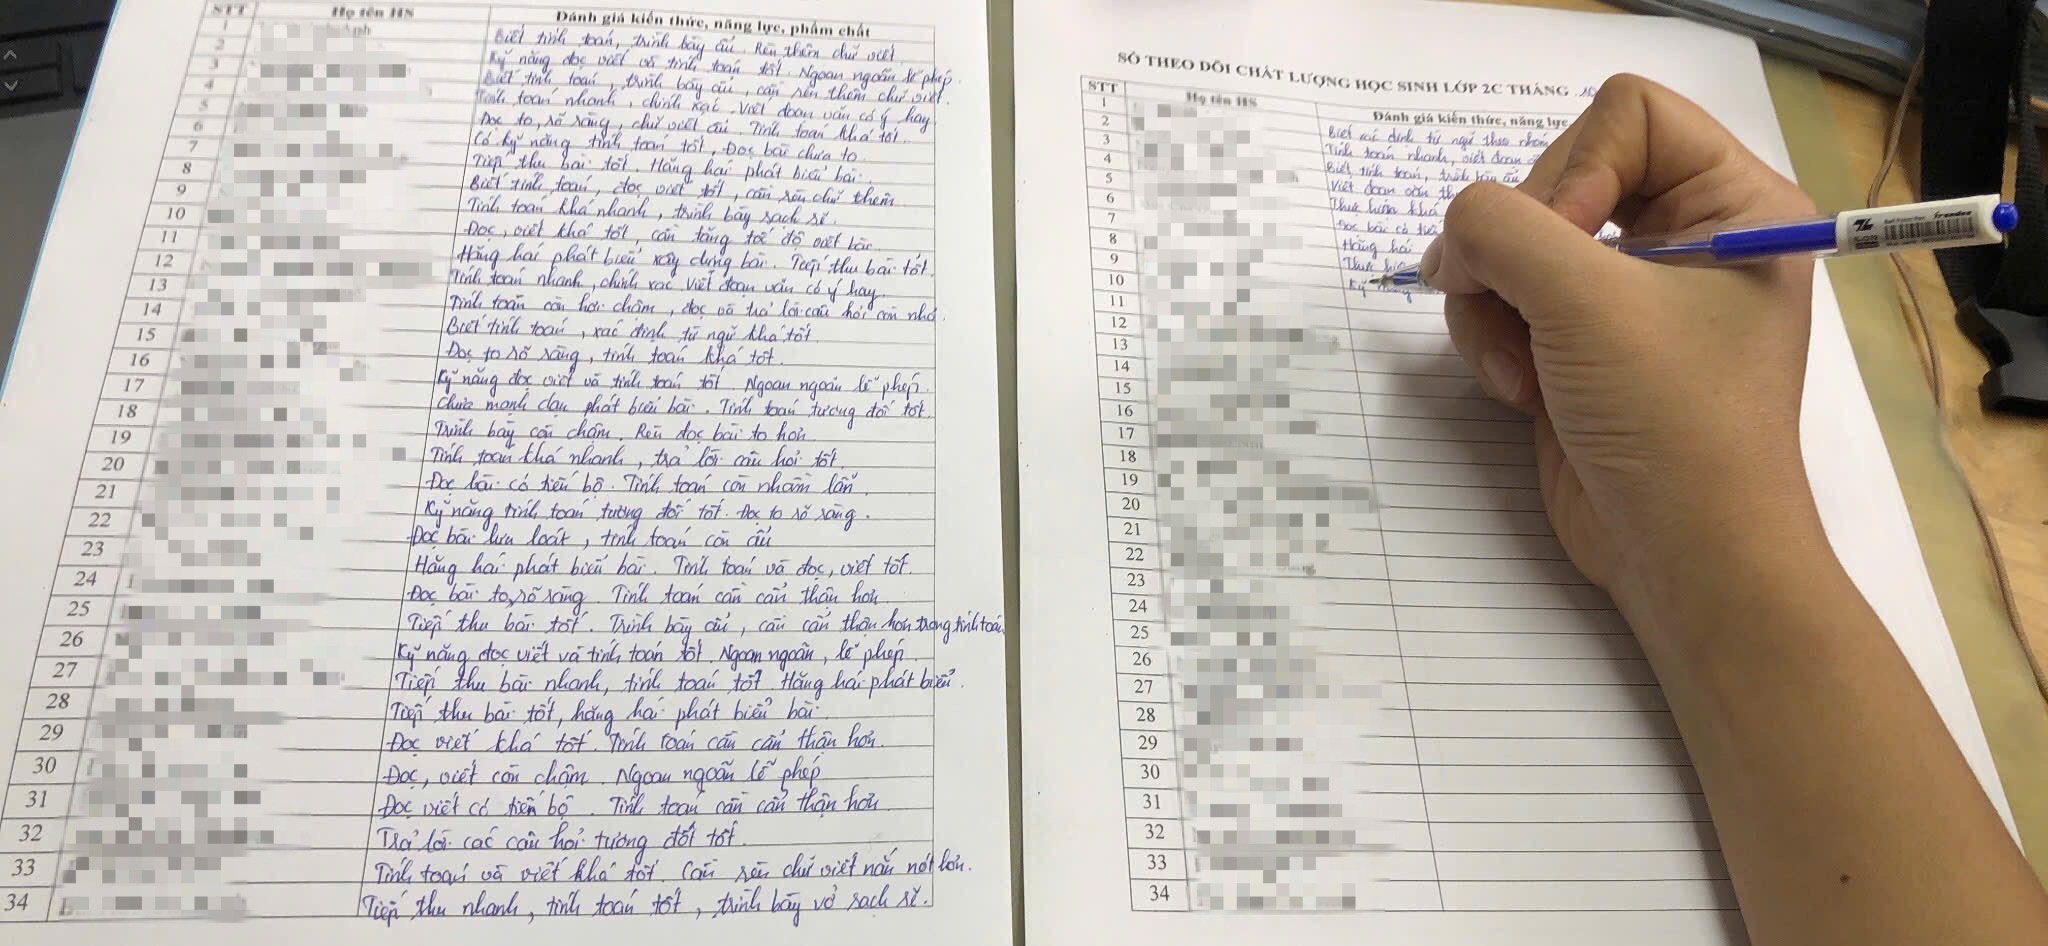 STT Họ tên HS Đánh giá kiến thức, năng lực, phẩm chất
1 Biết tính toán, trình bày ẩu. Rèn thêm chữ viết.
2 Kỹ năng đọc viết và tính toán tốt. Ngoan ngoãn lễ phép.
3 Biết tính toán, trình bày ẩu, cần rèn thêm chữ viết.
4 Tính toán nhanh, chính xác. Viết đoạn văn có ý hay
5 Đọc to, rõ ràng, chữ viết ẩu. Tính toán khá tốt.
6 Có kỹ năng tính toán tốt, Đọc bài chưa to.
7 Tiếp thu bài tốt. Hăng hái phát biểu bài.
8 Biết tính toán, đọc viết tốt, cần rèn chữ thêm.
9 Tính toán khá nhanh, trình bày sạch sẽ.
10 Đọc, viết khá tốt, cần tăng tốc độ viết bài.
11 Hăng hái phát biểu xây dựng bài. Tiếp thu bài tốt.
12 Tính toán nhanh, chính xác. Viết đoạn văn có ý hay.
13 Tính toán còn hơi chậm, đọc và trả lời câu hỏi còn nhỏ.
14 Biết tính toán, xác định từ ngữ khá tốt.
15 Đọc to rõ ràng, tính toán khá tốt.
16 Kỹ năng đọc viết và tính toán tốt. Ngoan ngoãn lễ phép.
17 Chưa mạnh dạn phát biểu bài. Tính toán tương đối tốt.
18 Trình bày còn chậm. Rèn đọc bài to hơn.
19 Tính toán khá nhanh, trả lời câu hỏi tốt.
20 Đọc bài có tiến bộ. Tính toán còn nhầm lẫn.
21 Kỹ năng tính toán tương đối tốt. Đọc to rõ ràng.
22 Đọc bài lưu loát, tính toán còn ẩu
23 Hăng hái phát biểu bài. Tính toán và đọc, viết tốt.
24 Đọc bài to, rõ ràng. Tính toán cần cẩn thận hơn.
25 Tiếp thu bài tốt. Trình bày ẩu, cần cẩn thận hơn trong tính toán.
26 Kỹ năng đọc viết và tính toán tốt. Ngoan ngoãn, lễ phép.
27 Tiếp thu bài nhanh, tính toán tốt. Hăng hái phát biểu.
28 Tiếp thu bài tốt, hăng hái phát biểu bài.
29 Đọc viết khá tốt. Tính toán cần cẩn thận hơn.
30 Đọc, viết còn chậm. Ngoan ngoãn lễ phép
31 Đọc viết có tiến bộ. Tính toán cần cẩn thận hơn
32 Trả lời các câu hỏi tương đối tốt.
33 Tính toán và viết khá tốt. Cần rèn chữ viết nắn nót hơn.
34 Tiếp thu nhanh, tính toán tốt, trình bày vở sạch sẽ.
SỔ THEO DÕI CHẤT LƯỢNG HỌC SINH LỚP 2C THÁNG
STT Họ tên HS Đánh giá kiến thức, năng lực,
1 Biết xác định từ ngữ theo nhóm
2 Tính toán nhanh, viết đoạn
3 Biết tính toán, trình bày ẩu
4 Viết đoạn văn
5 Thực hiện khá
6 Đọc bài có
7 Hăng hái
8 Thực hiện
9 Kỹ năng
10
11
12
13
14
15
16
17
18
19
20
21
22
23
24
25
26
27
28
29
30
31
32
33
34